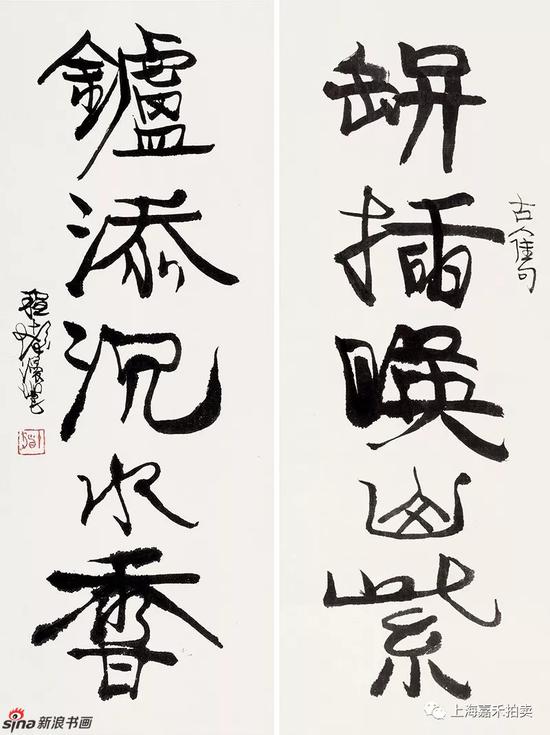 缾插暎山紫
古人佳句
鑪添沉水香
程十髮
sina新浪书画
上海嘉禾拍卖